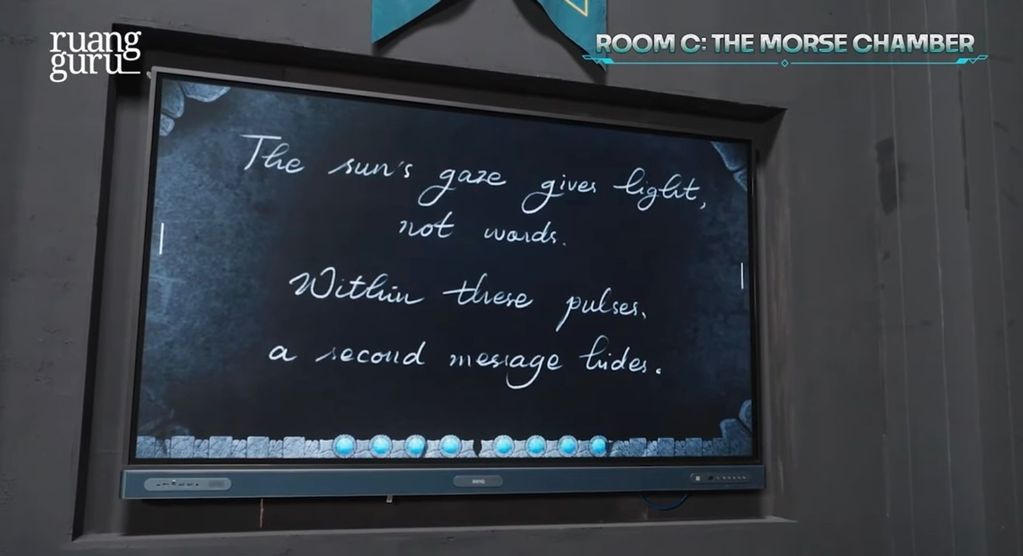 ruang
guru
ROOM C: THE MORSE CHAMBER
The sun's gaze gives light,
not words.
Within these pulses,
a second message hides.
BENQ